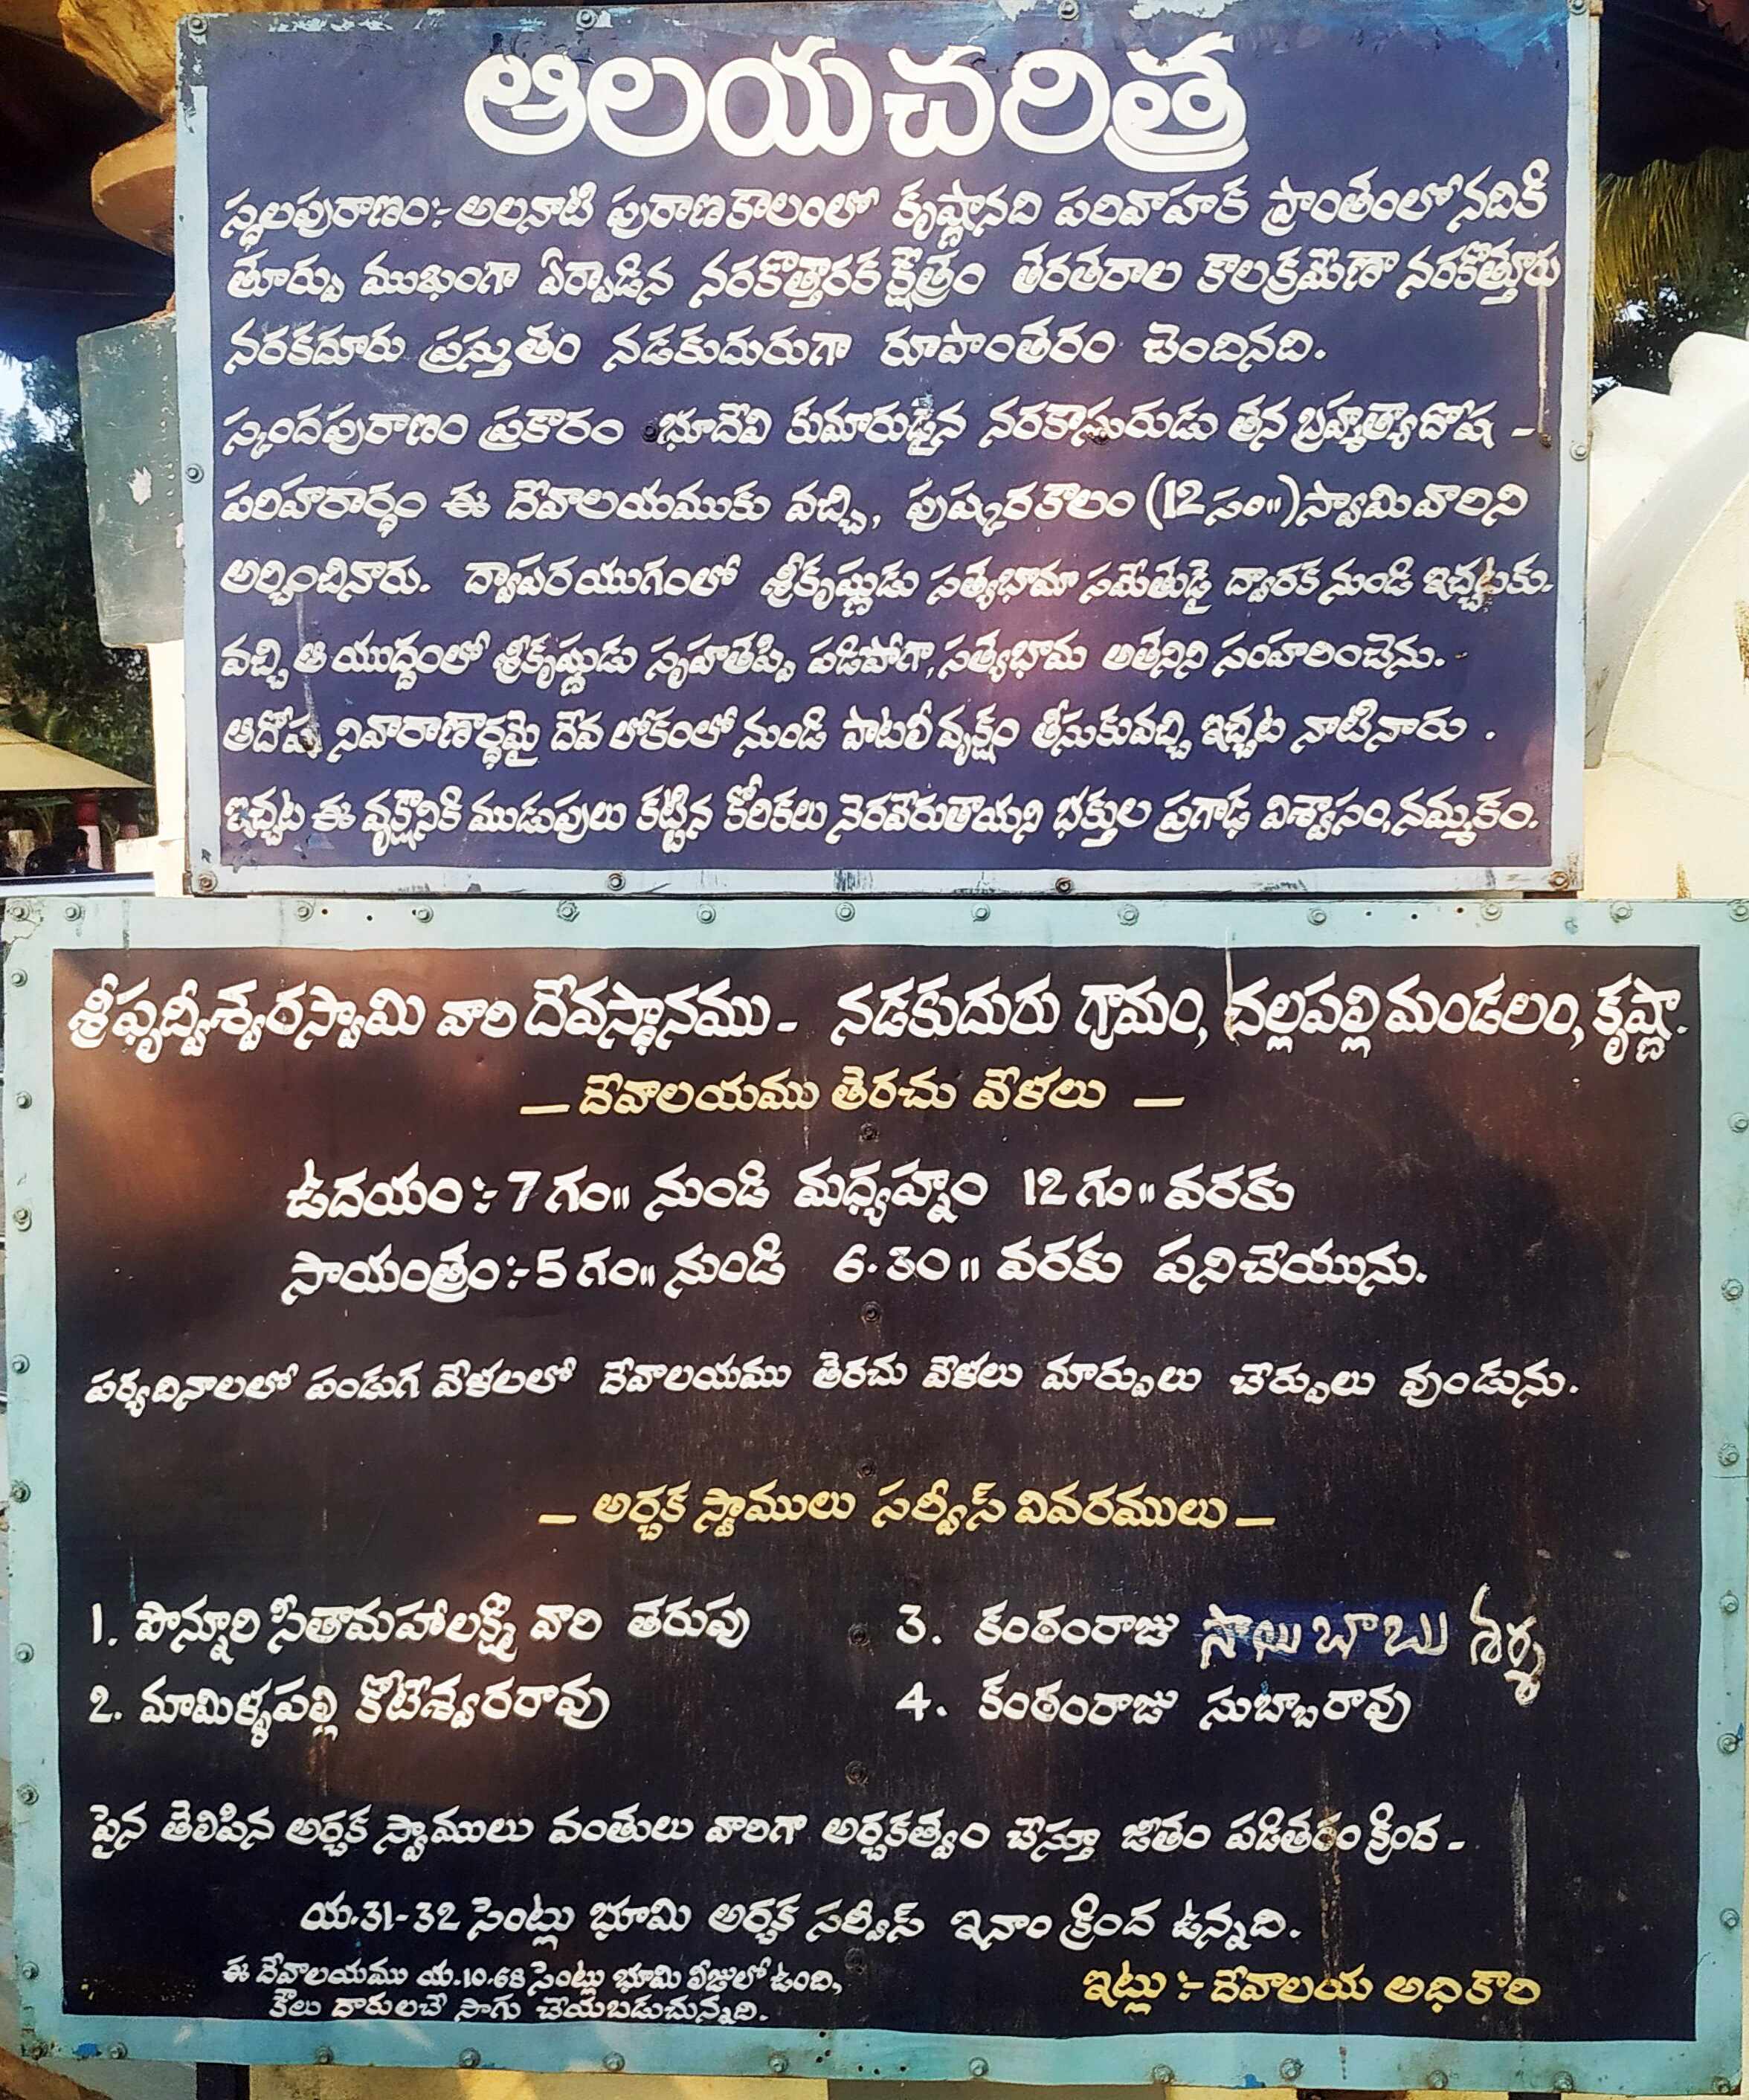 ఆలయచరిత్ర
స్థలపురాణం:- అలనాటి పురాణకాలంలో కృష్ణానది పరివాహక ప్రాంతంలో నదికి
తూర్పు ముఖంగా ఏర్పాడిన నరకొత్తారక క్షేత్రం తరతరాల కాలక్రమేణా నరకొత్తూరు
నరకదూరు ప్రస్తుతం నడకుదురుగా రూపాంతరం చెందినది.
స్కందపురాణం ప్రకారం భూదేవి కుమారుడైన నరకాసురుడు తన బ్రహ్మత్యాదోష -
పరిహరార్ధం ఈ దేవాలయముకు వచ్చి, పుష్కరకాలం (12 సం॥) స్వామివారిని
అర్చించినారు. ద్వాపరయుగంలో శ్రీకృష్ణుడు సత్యభామా సమేతుడై ద్వారక నుండి ఇచ్చటకు.
వచ్చి ఆ యుద్ధంలో శ్రీకృష్ణుడు స్పృహతప్పి పడిపోగా, సత్యభామ అతనిని సంహరించెను.
ఆదోష నివారాణార్ధమై దేవ లోకంలో నుండి పాటలీ వృక్షం తీసుకువచ్చి ఇచ్చట నాటినారు .
ఇచ్చట ఈ వృక్షానికి ముడుపులు కట్టిన కోరికలు నెరవేరుతాయని భక్తుల ప్రగాఢ విశ్వాసం, నమ్మకం.
శ్రీపృద్వీశ్వరస్వామి వారి దేవస్థానము - నడకుదురు గ్రామం, చల్లపల్లి మండలం, కృష్ణా.
— దేవాలయము తెరచు వేళలు —
ఉదయం :- 7 గం॥ నుండి మధ్యహ్నం 12 గం॥ వరకు
సాయంత్రం :- 5 గం॥ నుండి 6.30 ॥ వరకు పనిచేయును.
పర్వదినాలలో పండుగ వేళలలో దేవాలయము తెరచు వేళలు మార్పులు చేర్పులు వుండును.
— అర్చక స్వాములు సర్వీస్ వివరములు —
1. పొన్నూరి సీతామహాలక్ష్మి వారి తరుపు
3. కంఠంరాజు సాయిబాబు శర్మ
2. మామిళ్ళపల్లి కోటేశ్వరరావు
4. కంఠంరాజు సుబ్బారావు
పైన తెలిపిన అర్చక స్వాములు వంతులు వారిగా అర్చకత్వం చేస్తూ జీతం పడితరం క్రింద -
య.31-32 సెంట్లు భూమి అర్చక సర్వీస్ ఇనాం క్రింద ఉన్నది.
ఈ దేవాలయము య.10-68 సెంట్లు భూమి లీజులో ఉంది,
కౌలు దారులచే సాగు చేయబడుచున్నది.
ఇట్లు :- దేవాలయ అధికారి